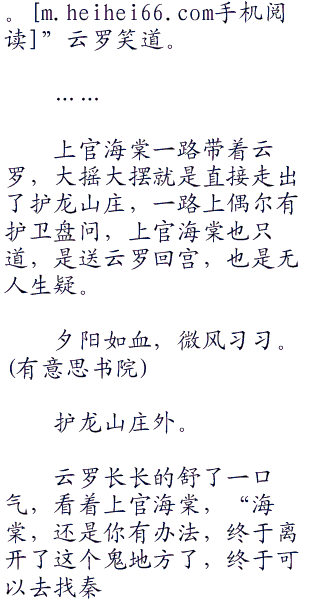 。[m.heihei66.com手机阅
读]”云罗笑道。
……
上官海棠一路带着云
罗，大摇大摆就是直接走出
了护龙山庄，一路上偶尔有
护卫盘问，上官海棠也只
道，是送云罗回宫，也是无
人生疑。
夕阳如血，微风习习。
(有意思书院)
护龙山庄外。
云罗长长的舒了一口
气，看着上官海棠，“海
棠，还是你有办法，终于离
开了这个鬼地方了，终于可
以去找秦